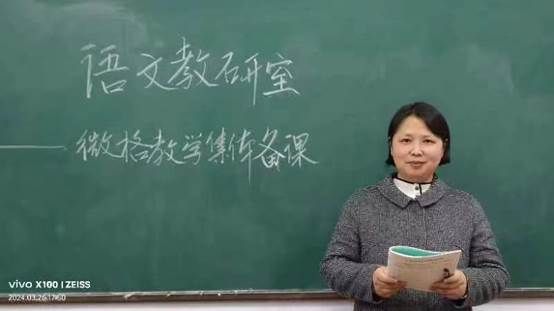 语文教研室
——微格教学集体备课
vivo X100 | ZEISS
2024.03.26 17:50